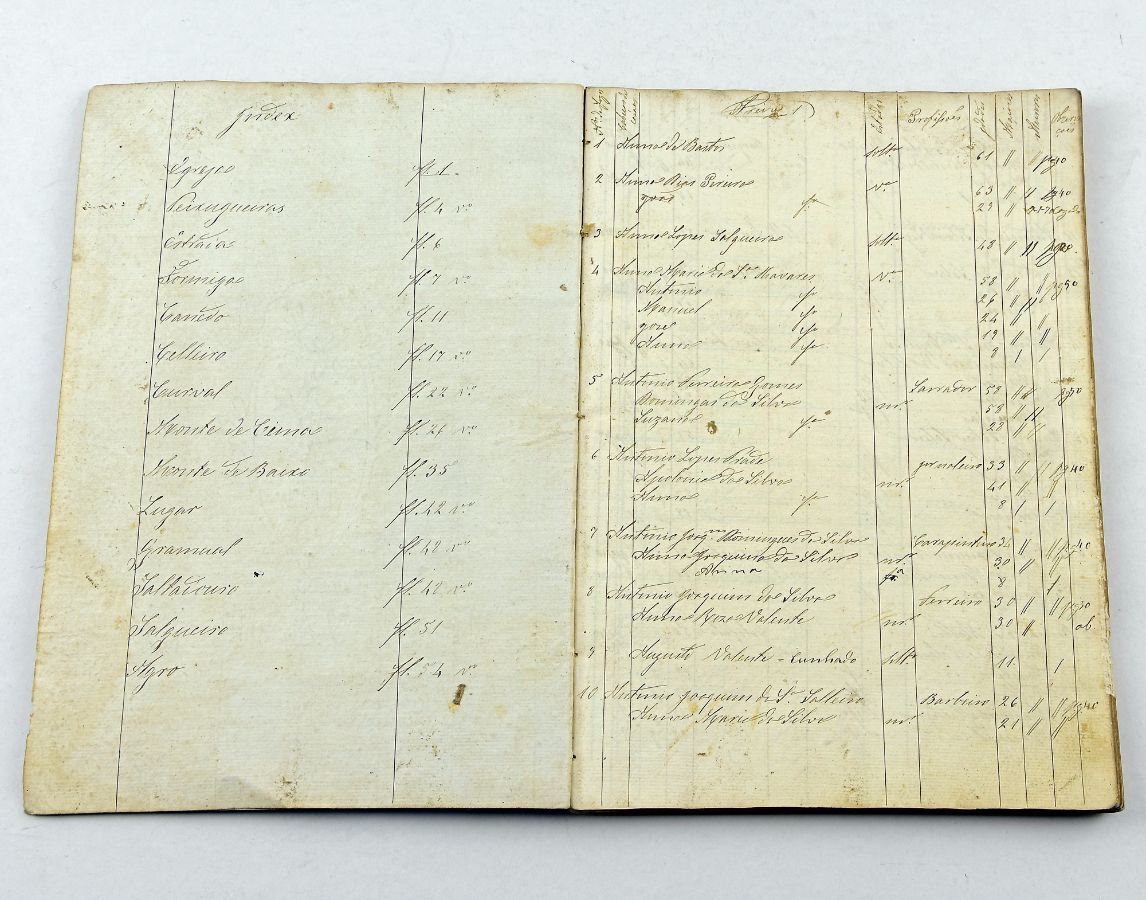 Index
Egreja fl. 1
Peixugueiras fl. 4 vº
Estrada fl. 6
Formiga fl. 7 vº
Canedo fl. 11
Celleiro fl. 17 vº
Curval fl. 22 vº
Monte de Cima fl. 26 vº
Monte de Baixo fl. 35
Lugar fl. 42 vº
Gramual fl. 42 vº
Saltadouro fl. 42 vº
Salgueiro fl. 51
Agro fl. 54 vº
Estados Profissões
1 Anna de Bastos soltª 61
2 Anna Dias vª 63
José fº 23
3 Anna Lopes Salgueira soltª 48
4 Anna Maria da Sª Tavares vª 58
Antonio fº 26
Manuel fº 24
José fº 19
Anna fª 8
5 Antonio Ferreira Gomes Lavrador 58
Domingas da Silva mª 58
Suzana fª 28
6 Antonio Lopes jornaleiro 33
Apolonia da Silva mª 41
Anna fª 8
7 Antonio Joaqᵐ Domingues da Silva Carapinteiro 34
Anna Joaquina da Silva mª 30
Anna fª 8
8 Antonio Joaquim da Silva Ferreiro 30
Anna Roza Valente mª 30
9 Augusta Valente - cunhada soltª 11
10 Antonio Joaquim da Sª Barbeiro 26
Anna Maria da Silva mª 21